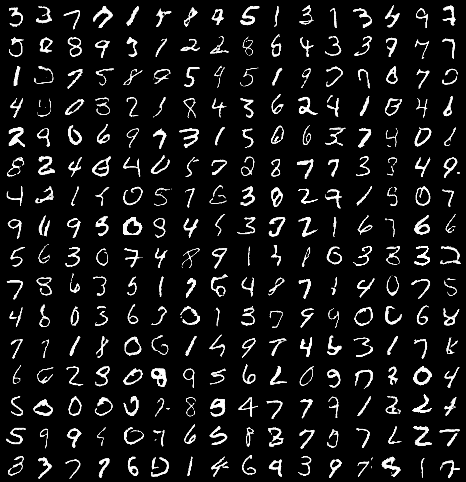 3 3 7 7 1 5 8 9 5 1 3 1 3 4 9 7
5 2 8 9 3 1 2 2 8 6 4 3 3 9 7 7
1 2 7 5 8 9 5 9 5 1 9 7 0 7 0
4 0 0 3 2 1 8 4 3 6 2 4 1 8 4 6
2 9 0 6 9 7 3 1 5 0 6 3 7 9 0 1
8 2 4 6 4 0 5 7 2 8 7 7 3 3 4 9
4 2 1 5 0 5 7 6 3 8 2 9 1 8 0 7
9 11 9 5 0 8 4 5 3 7 2 1 6 7 6 6
5 6 3 0 7 4 8 9 1 3 1 0 3 8 3 2
7 8 6 3 5 1 9 6 4 8 7 1 9 0 7 5
4 8 0 3 6 3 0 1 3 7 9 9 0 0 6 8
7 7 1 8 0 6 1 5 9 7 4 6 3 1 7 8
6 6 2 9 0 8 9 5 6 2 0 9 7 2 0 4
5 0 0 0 0 7 8 9 4 7 7 9 1 2 2 7
5 9 9 4 0 7 6 5 8 8 7 0 7 2 2 7
3 3 7 7 6 0 1 4 6 9 3 9 7 5 1 7